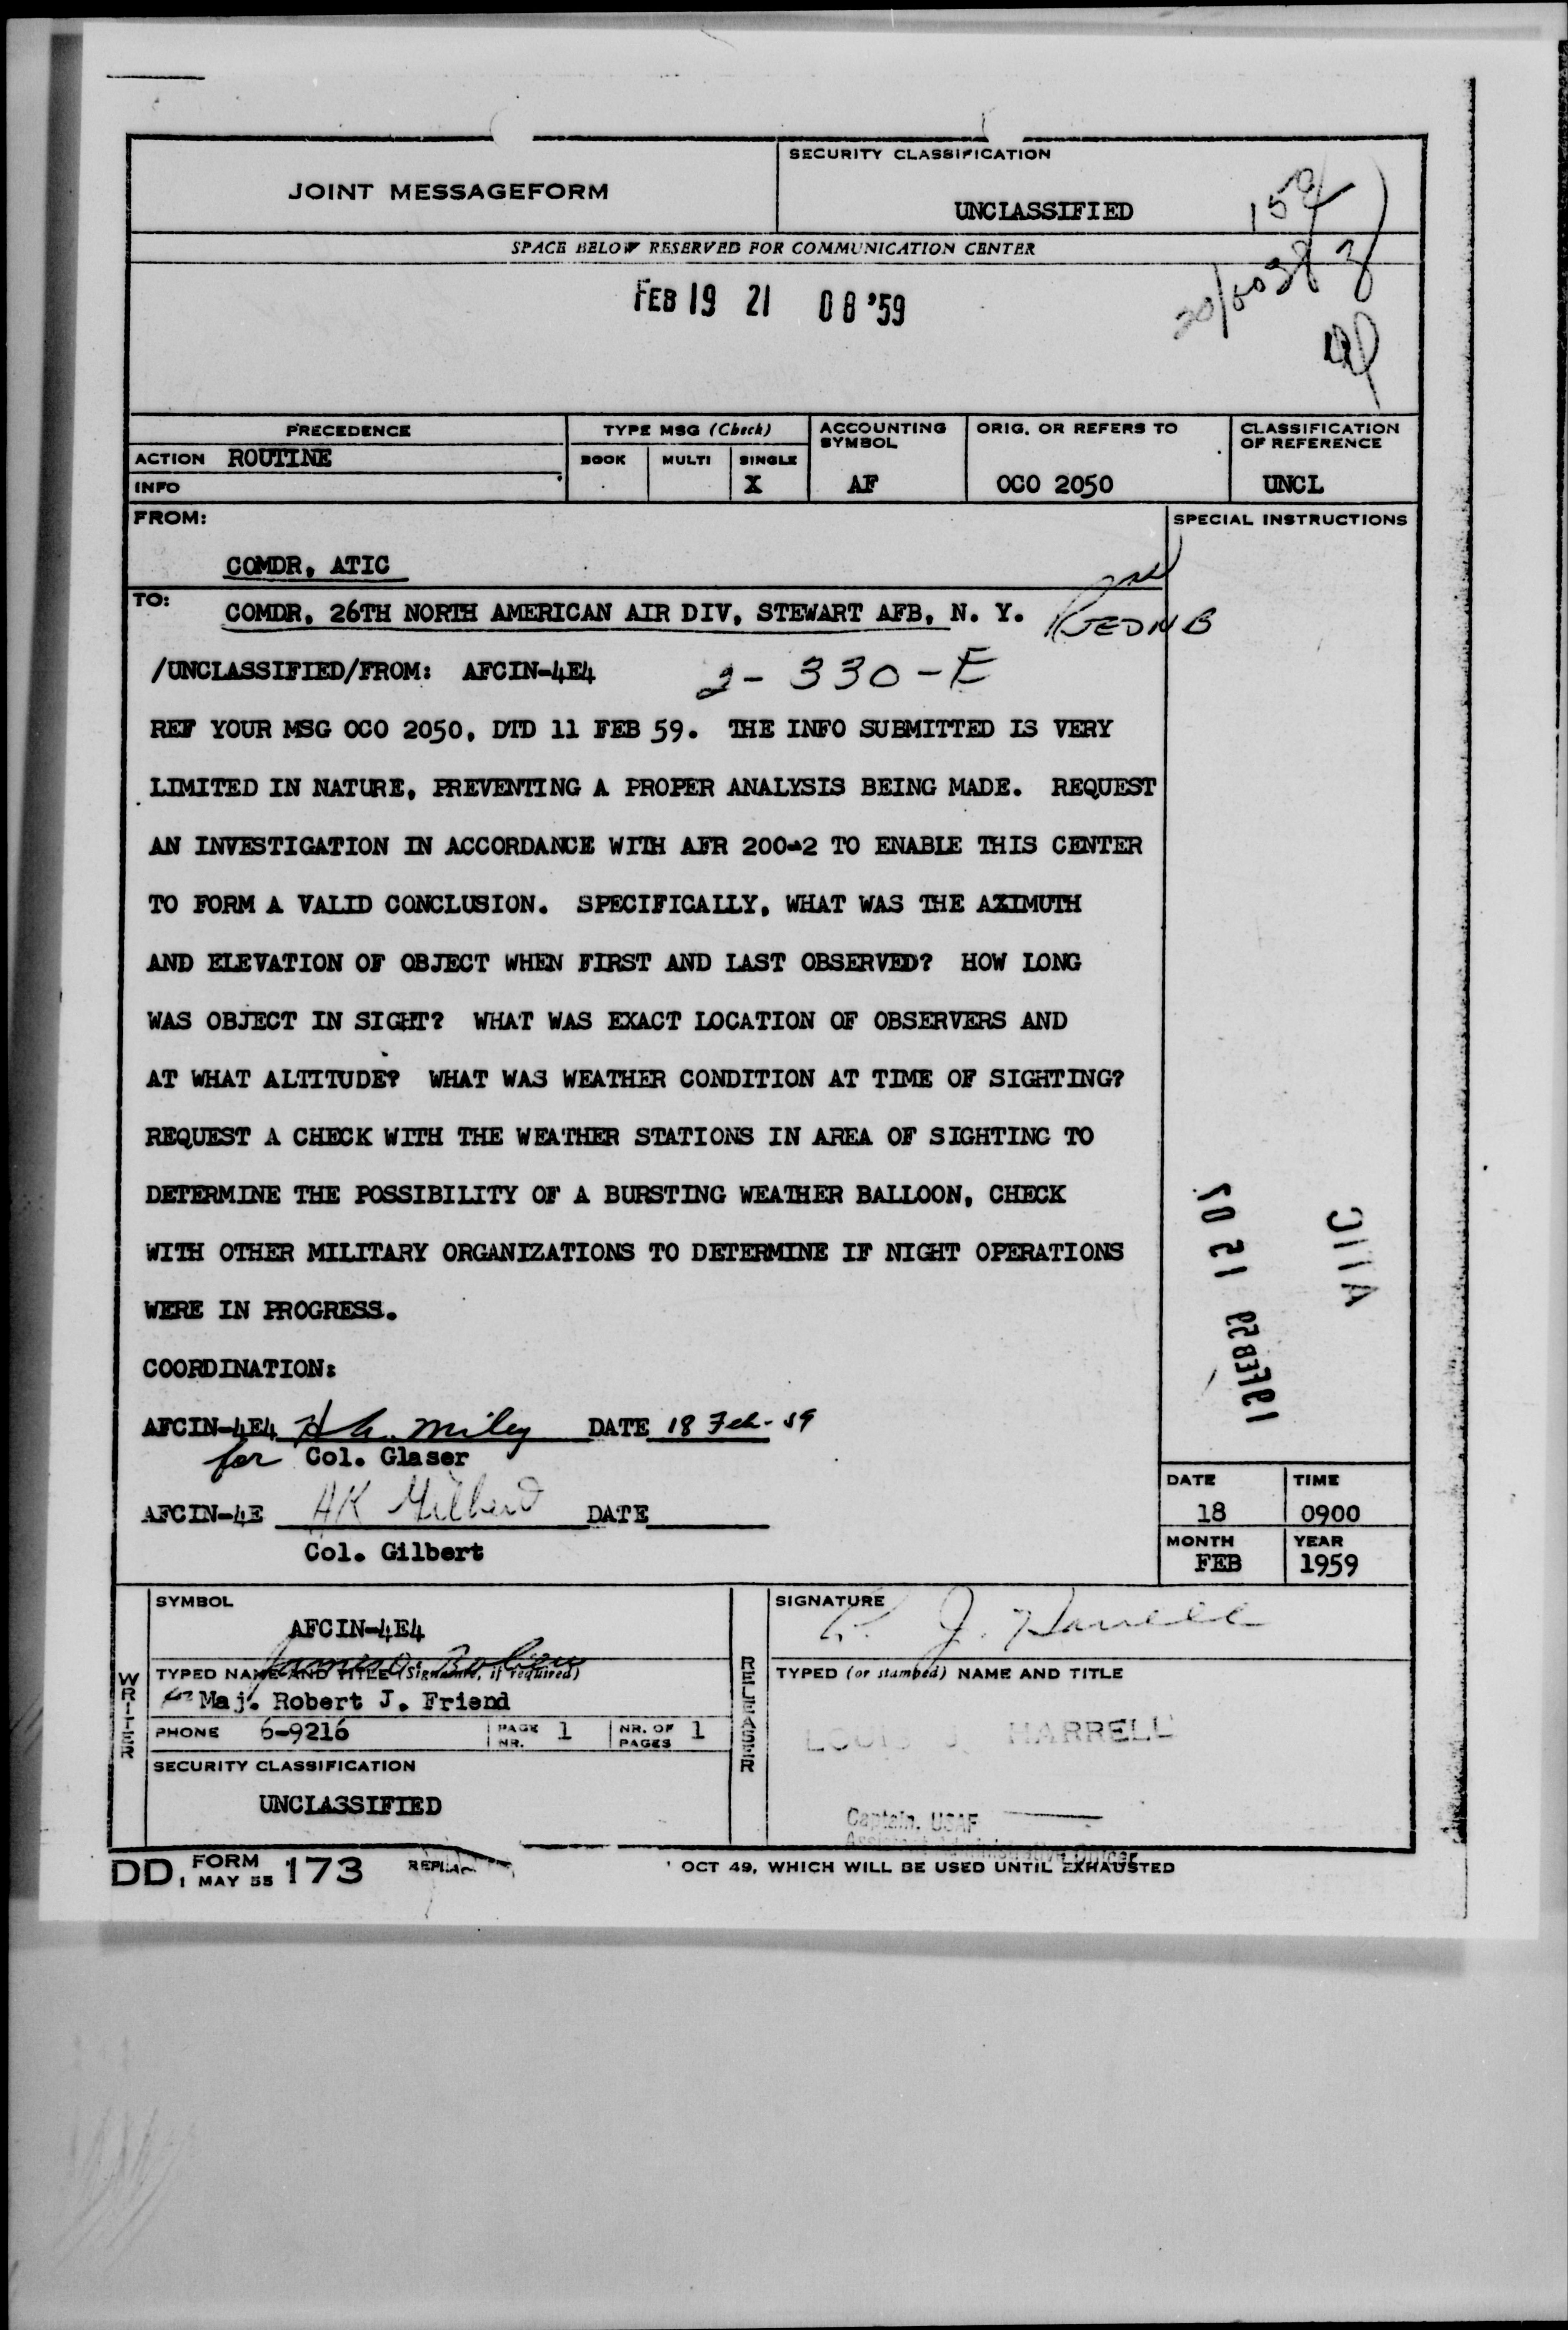 JOINT MESSAGEFORM
SECURITY CLASSIFICATION
UNCLASSIFIED
SPACE BELOW RESERVED FOR COMMUNICATION CENTER
FEB 19 21 08 '59
PRECEDENCE
ACTION ROUTINE
INFO
TYPE MSG (Check)
BOOK MULTI SINGLE
X
ACCOUNTING SYMBOL
AF
ORIG. OR REFERS TO
OCO 2050
CLASSIFICATION OF REFERENCE
UNCL
FROM:
COMDR, ATIC
SPECIAL INSTRUCTIONS
TO: COMDR, 26TH NORTH AMERICAN AIR DIV, STEWART AFB, N. Y. RJEDNB
/UNCLASSIFIED/FROM: AFCIN-4E4 2-330-E
REF YOUR MSG OCO 2050, DTD 11 FEB 59. THE INFO SUBMITTED IS VERY
LIMITED IN NATURE, PREVENTING A PROPER ANALYSIS BEING MADE. REQUEST
AN INVESTIGATION IN ACCORDANCE WITH AFR 200-2 TO ENABLE THIS CENTER
TO FORM A VALID CONCLUSION. SPECIFICALLY, WHAT WAS THE AXIMUTH
AND ELEVATION OF OBJECT WHEN FIRST AND LAST OBSERVED? HOW LONG
WAS OBJECT IN SIGHT? WHAT WAS EXACT LOCATION OF OBSERVERS AND
AT WHAT ALTITUDE? WHAT WAS WEATHER CONDITION AT TIME OF SIGHTING?
REQUEST A CHECK WITH THE WEATHER STATIONS IN AREA OF SIGHTING TO
DETERMINE THE POSSIBILITY OF A BURSTING WEATHER BALLOON, CHECK
WITH OTHER MILITARY ORGANIZATIONS TO DETERMINE IF NIGHT OPERATIONS
WERE IN PROGRESS.
COORDINATION:
AFCIN-4E4 H A. Miley DATE 18 Feb-59
for Col. Glaser
AFCIN-4E AK Gilbert DATE
Col. Gilbert
19FEB59 12 07
ATIC
DATE
18
TIME
0900
MONTH
FEB
YEAR
1959
WRITER
SYMBOL
AFCIN-4E4
TYPED NAME AND TITLE (Signature, if required)
for Maj. Robert J. Friend
PHONE 6-9216
PAGE NR. 1
NR. OF PAGES 1
SECURITY CLASSIFICATION
UNCLASSIFIED
RELEASER
SIGNATURE
L. J. Harrell
TYPED (or stamped) NAME AND TITLE
LOUIS J. HARRELL
Captain, USAF
Assistant Administrative Officer
DD FORM 1 MAY 55 173
OCT 49, WHICH WILL BE USED UNTIL EXHAUSTED